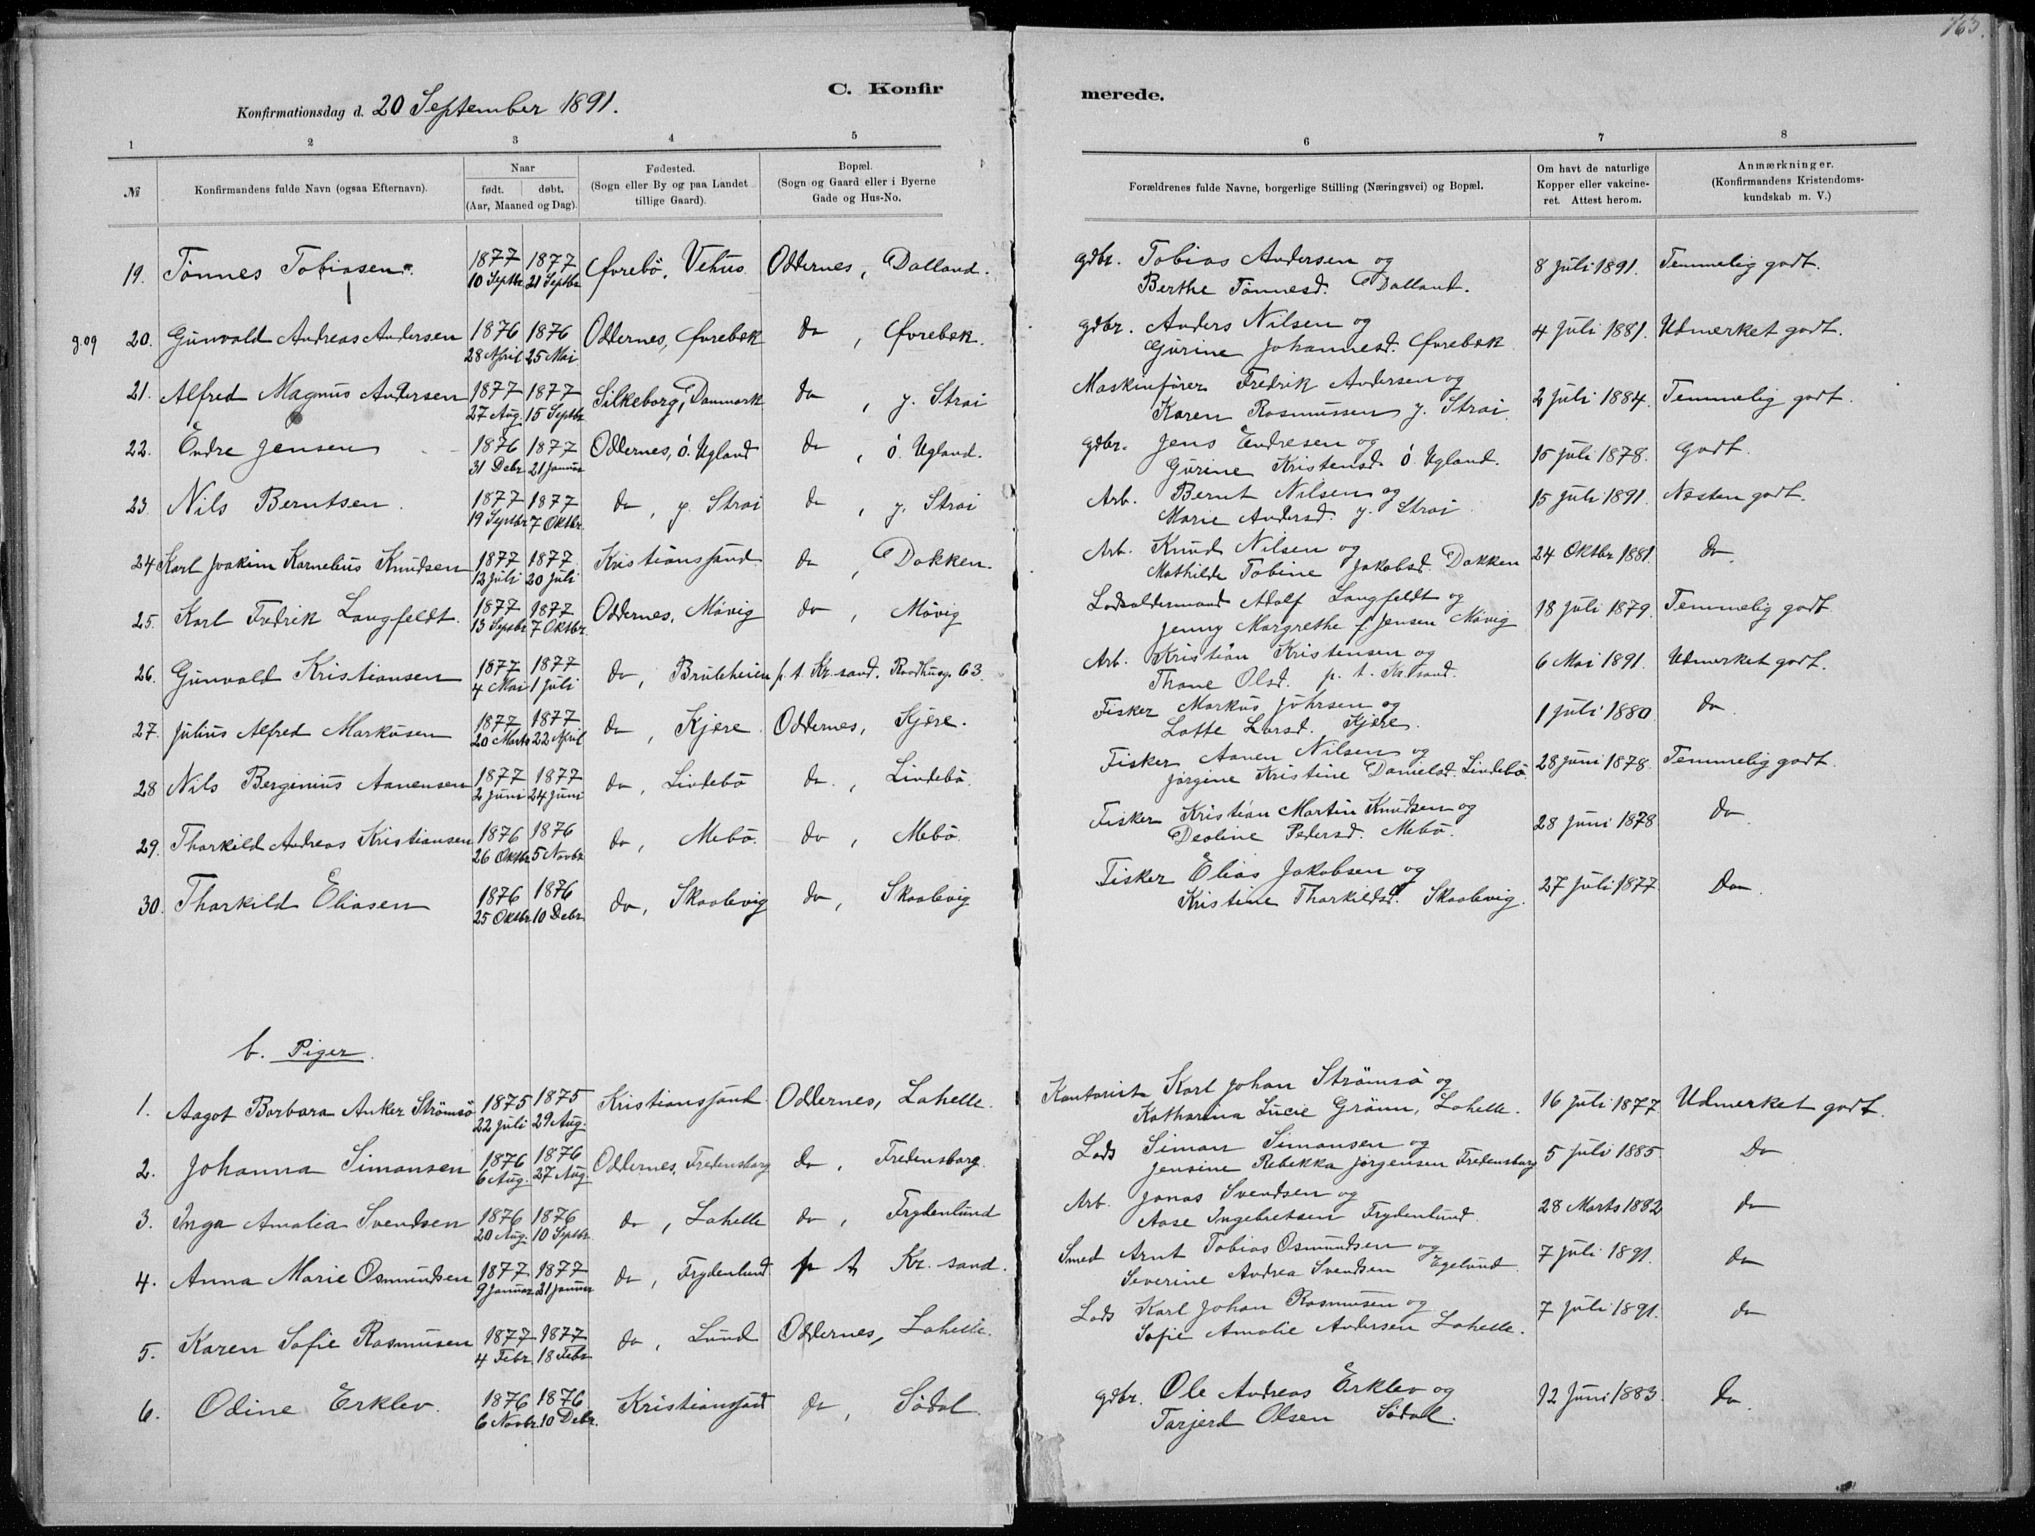 763.
C. Konfir merede.
Konfirmationsdag d. 20 September 1891.
1 2 3 4 5 6 7 8
№
Konfirmandens fulde Navn (ogsaa Efternavn).
Naar
født. døbt.
(Aar, Maaned og Dag).
Fødested.
(Sogn eller By og paa Landet
tillige Gaard).
Bopæl.
(Sogn og Gaard eller i Byerne
Gade og Hus-No.
Forældrenes fulde Navne, borgerlige Stilling (Næringsvei) og Bopæl.
Om havt de naturlige
Kopper eller vakcine-
ret. Attest herom.
Anmærkninger.
(Konfirmandens Kristendoms-
kundskab m. V.)
19. Tønnes Tobiasen. 1877 10 Septbr 1877 21 Septbr Øvrebö, Vehus Oddernes, Dalland. gdbr. Tobias Andersen og
Berthe Tönnesd. Dalland. 8 Juli 1891. Temmelig godt.
g.og 20. Gunvald Andreas Andersen 1876 28 April 1876 25 Mai Oddernes, Øvrebæk do, Øvrebæk. gdbr. Anders Nilsen og
Gurine Johannesd. Øvrebæk 4 Juli 1881. Udmerket godt.
21. Alfred Magnus Andersen 1877 27 Aug. 1877 15 Septbr Silkeborg, Danmark do, y. Strai Maskinfører Fredrik Andersen og
Karen Rasmussen y. Strai. 2 Juli 1884. Temmelig godt.
22. Endre Jensen 1876 31 Debr. 1877 21 Januar Oddernes, ö. Ugland do, ö. Ugland. gdbr. Jens Endresen og
Gurine Kristensd. ö. Ugland. 15 Juli 1878. godt.
23 Nils Berntsen. 1877 19 Septbr 1877 7 Oktbr. do, y. Strai do, y. Strai Arb. Bernt Nilsen og
Marie Andersd. y. Strai. 15 Juli 1891. Næsten godt.
24 Karl Joakim Kornelius Knudsen 1877 12 Juli 1877 20 Juli Kristianssand do, Dokken. Arb. Knud Nilsen og
Mathilde Tobine Jakobsd. Dokken 24 Oktbr 1881. do
25. Karl Fredrik Langfeldt. 1877 13 Septbr 1877 7 Oktbr. Oddernes, Mövig do, Mövig Lodsoldermand Adolf Langfeldt og
Jenny Margrethe f. Jensen Mövig 18 Juli 1879. Temmelig godt
26. Gunvald Kristiansen 1877 4 Mai 1877 1 Juli do, Bruleheien p. t. Kr. sand. Raadhusg. 63. Arb. Kristian Kristensen og
Thone Olsd. p. t. Kr. sand. 6 Mai 1891. Udmerket godt.
27. Julius Alfred Markusen 1877 20 Marts 1877 22 April do, Kjære. Oddernes, Kjære. Fisker Markus Johrsen og
Lotte Larsd. Kjære. 1 Juli 1880. do
28 Nils Berginius Aanensen 1877 2 Juni 1877 24 Juni do, Lindebö do., Lindebö. Fisker Aanen Nilsen og
Jörgine Kristine Danielsd. Lindebö 28 Juni 1878. Temmelig godt.
29. Tharkild Andreas Kristiansen 1876 26 Oktbr 1876 5 Novbr do, Mebö. do, Mebö. Fisker Kristian Martin Knudsen og
Deoline Pedersd. Mebö. 28 Juni 1878 do
30. Tharkild Eliasen 1876 25 Oktbr 1876 10 Debr. do, Skaalevig do, Skaalevig Fisker Elias Jakobsen og
Kristine Tharkildsd. Skaalevig. 27 Juli 1877. Do.
b. Piger.
1. Aagot Barbara Anker Strömsö 1875 22 Juli 1875 29 Aug. Kristianssand Oddernes, Lahelle. Kontorist Karl Johan Strömsö og
Katharina Lucie Grönn, Lahelle. 16 Juli 1877 Udmerket godt.
2. Johanna Simonsen 1876 6 Aug. 1876 27 Aug. Oddernes, Fredensborg do, Fredensborg. Lods Simon Simonsen og
Jensine Rebekka Jörgensen Fredensborg 5 Juli 1885. Do
3. Inga Amalia Svendsen 1876 20 Aug. 1876 10 Septbr. do, Lahelle do, Frydenlund Arb. Jonas Svendsen og
Aase Ingebretsen Frydenlund. 28 Marts 1882 do
4. Anna Marie Osmundsen 1877 9 Januar 1877 21 Januar do, Frydenlund p t Kr. sand. Smed Arnt Tobias Osmundsen og
Severine Andrea Svendsen Egelund. 7 Juli 1891. do
5. Karen Sofie Rasmusen 1877 4 Febr. 1877 18 Febr do, Lund Oddernes, Lahelle. Lods Karl Johan Rasmusen og
Sofie Amalie Andersen Lahelle. 7 Juli 1891. do
6. Odine Erklev. 1876 6 Novbr. 1876 10 Debr. Kristianssand do, Södal. gdbr. Ole Andreas Erklev og
Tarjerd Olsen Södal. 12 Juni 1883. Do.